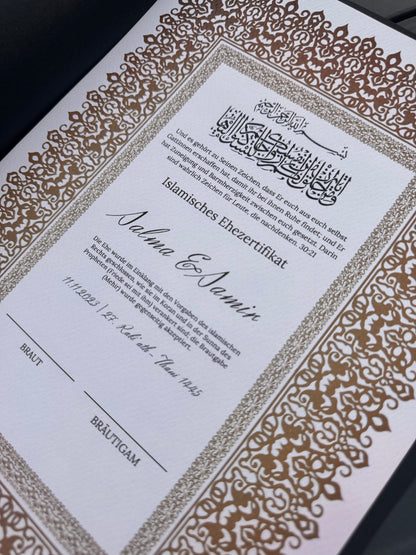 Und es gehört zu Seinen Zeichen, dass Er euch aus euch selbst
Gattinnen erschaffen hat, damit ihr bei ihnen Ruhe findet; und Er
hat Zuneigung und Barmherzigkeit zwischen euch gesetzt. Darin
sind wahrlich Zeichen für Leute, die nachdenken. 30:21
Islamisches Ehezertifikat
Nalma & Namin
Die Ehe wurde im Einklang mit den Vorgaben des islamischen
Rechts geschlossen, wie sie im Koran und in der Sunna des
Propheten (Friede sei mit ihm) verankert sind; die Brautgabe
(Mehr) wurde gegenseitig akzeptiert.
11.11.2023 | 27. Rabi ath-Thani 1445
BRAUT
BRÄUTIGAM